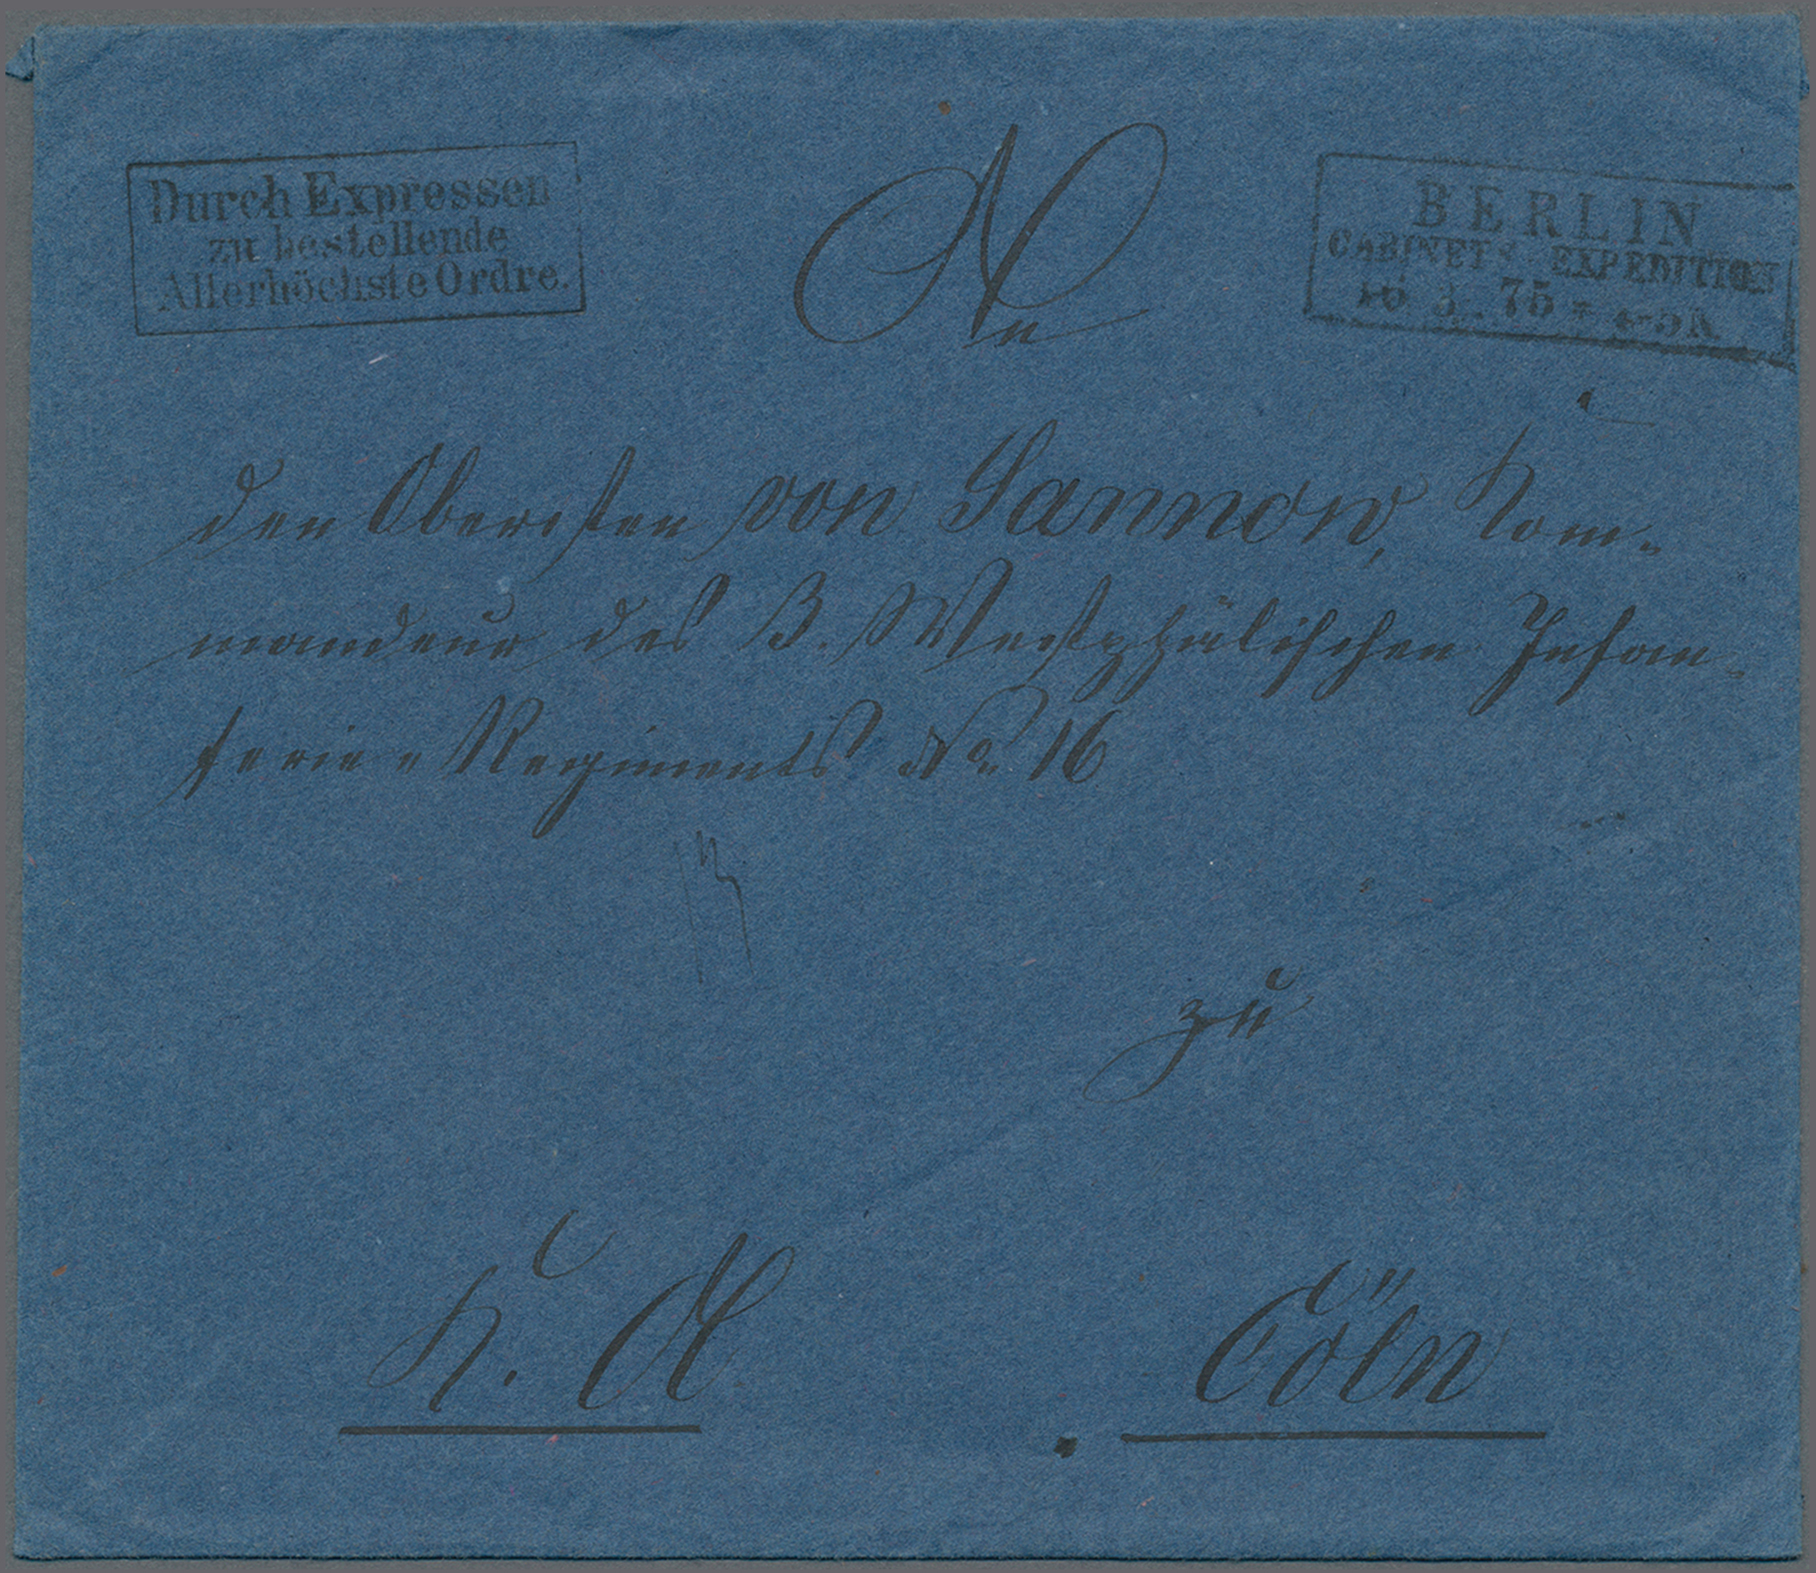 Durch Expressen
zu bestellende
Allerhöchste Ordre.
BERLIN
CABINETS-EXPEDITION
75
An
den Obersten von Sannow, Kom-
mandeur des 3. Westphälischen Infan-
terie-Regiments No. 16
zu
Cöln